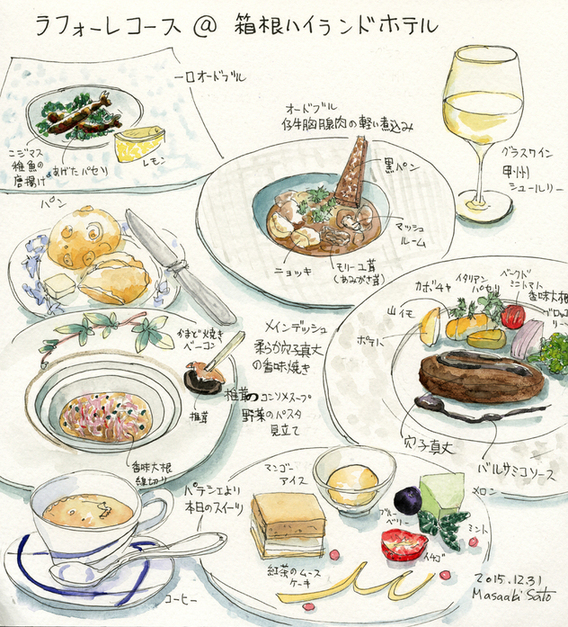 ラフォーレコース @ 箱根ハイランドホテル
一口オードブル
ニジマス
稚魚の
唐揚げ
あげたパセリ
レモン
オードブル
仔牛胸腺肉の軽い煮込み
黒パン
マッシュ
ルーム
ニョッキ
モリーユ茸
(あみがさ茸)
グラスワイン
甲州
シュールリー
パン
かまど焼き
ベーコン
椎茸
椎茸のコンソメスープ
野菜のパスタ
見立て
香味大根
線切り
メインデッシュ
柔らか穴子真丈
の香味焼き
山イモ
カボチャ
イタリアン
パセリ
ベークド
ミニトマト
香味大根
ブロッコ
リー
ポテト
穴子真丈
バルサミコソース
パテシエより
本日のスイーツ
マンゴー
アイス
紅茶のムース
ケーキ
ブルー
ベリー
メロン
ミント
イチゴ
コーヒー
2015.12.31
Masaaki Sato